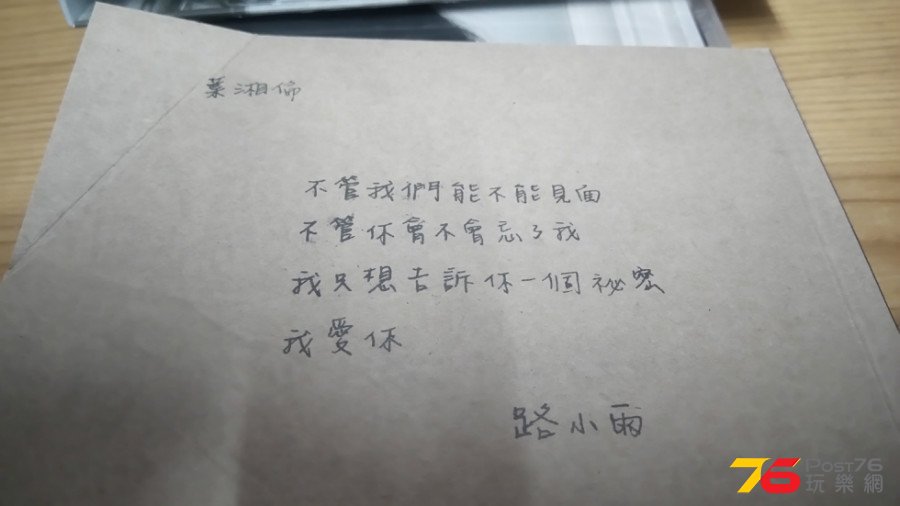 葉湘倫
不管我們能不能見面
不管你會不會忘了我
我只想告訴你一個祕密
我愛你
路小雨
76 Post76
玩樂網